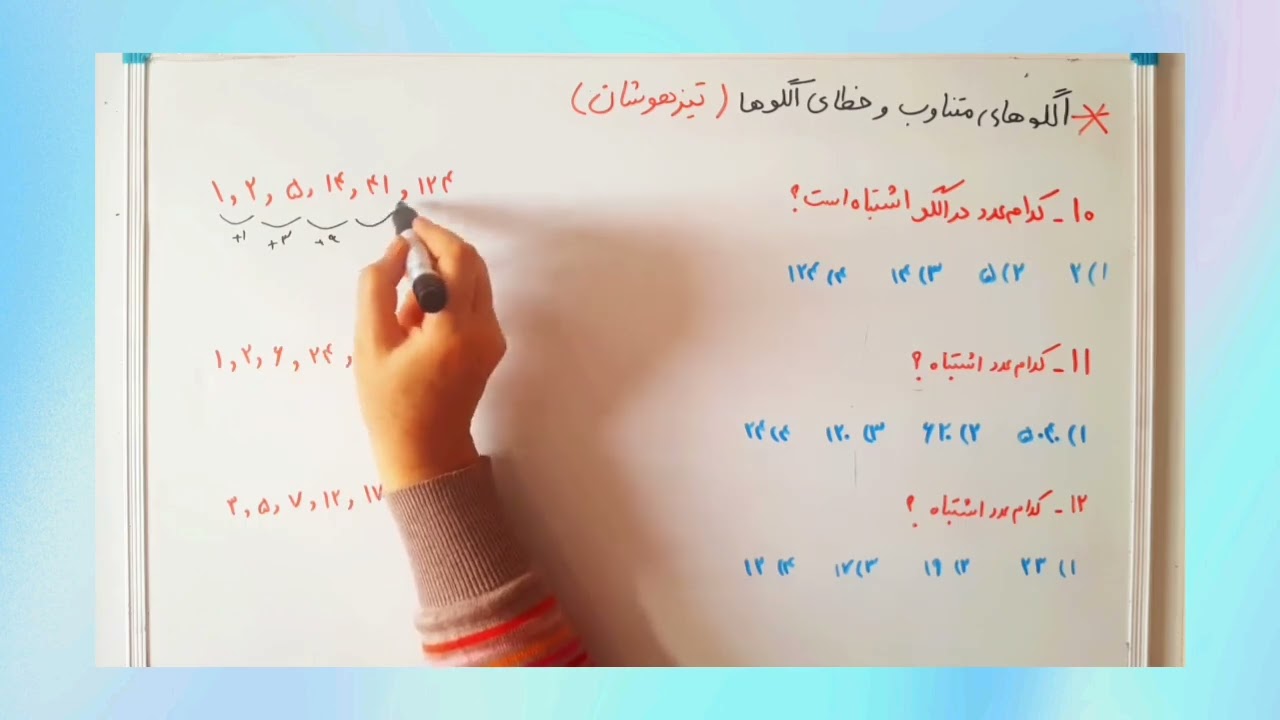 * الگوهای متناوب و خطای الگوها (تیزهوشان)
۱۰ - کدام عدد در الگو اشتباه است؟
۱, ۲, ۵, ۱۴, ۴۱, ۱۲۴
+۱ +۳ +۹
۱) ۲ ۲) ۵ ۳) ۱۴ ۴) ۱۲۴
۱۱ - کدام عدد اشتباه ؟
۱, ۲, ۶, ۲۴,
۱) ۵۰۴۰ ۲) ۶۲۰ ۳) ۱۲۰ ۴) ۲۴
۱۲ - کدام عدد اشتباه ؟
۳, ۵, ۷, ۱۲, ۱۷
۱) ۲۳ ۲) ۱۹ ۳) ۱۷ ۴) ۱۲